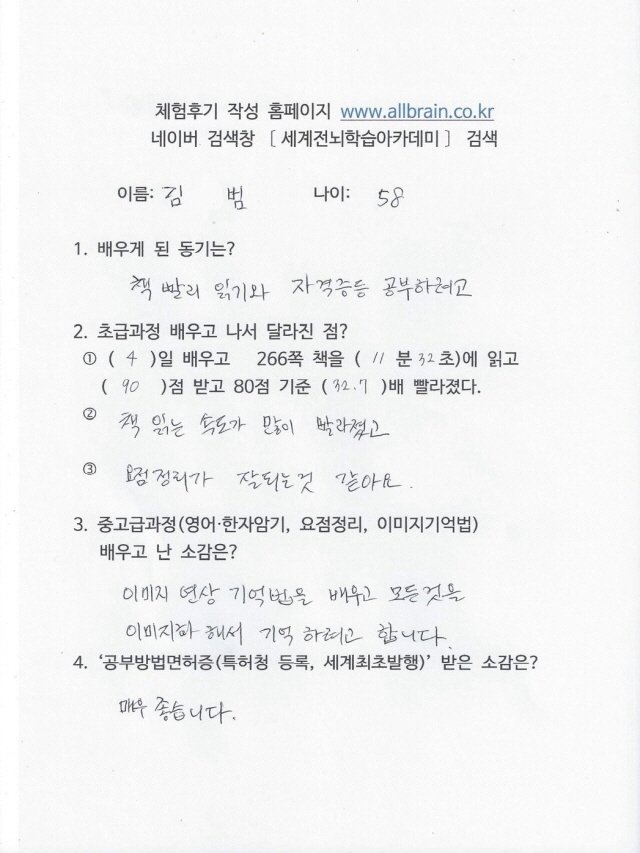 체험후기 작성 홈페이지 www.allbrain.co.kr
네이버 검색창 [ 세계전뇌학습아카데미 ] 검색
이름: 김 범 나이: 58
1. 배우게 된 동기는?
책 빨리 읽기와 자격증등 공부하려고
2. 초급과정 배우고 나서 달라진 점?
① ( 4 )일 배우고 266쪽 책을 ( 11 분 32초)에 읽고
( 90 )점 받고 80점 기준 ( 32.7 )배 빨라졌다.
② 책 읽는 속도가 많이 빨라졌고
③ 요점정리가 잘되는것 같아요.
3. 중고급과정(영어·한자암기, 요점정리, 이미지기억법)
배우고 난 소감은?
이미지 연상 기억법을 배우고 모든것을
이미지화 해서 기억 하려고 합니다.
4. ‘공부방법면허증(특허청 등록, 세계최초발행)’ 받은 소감은?
매우 좋습니다.